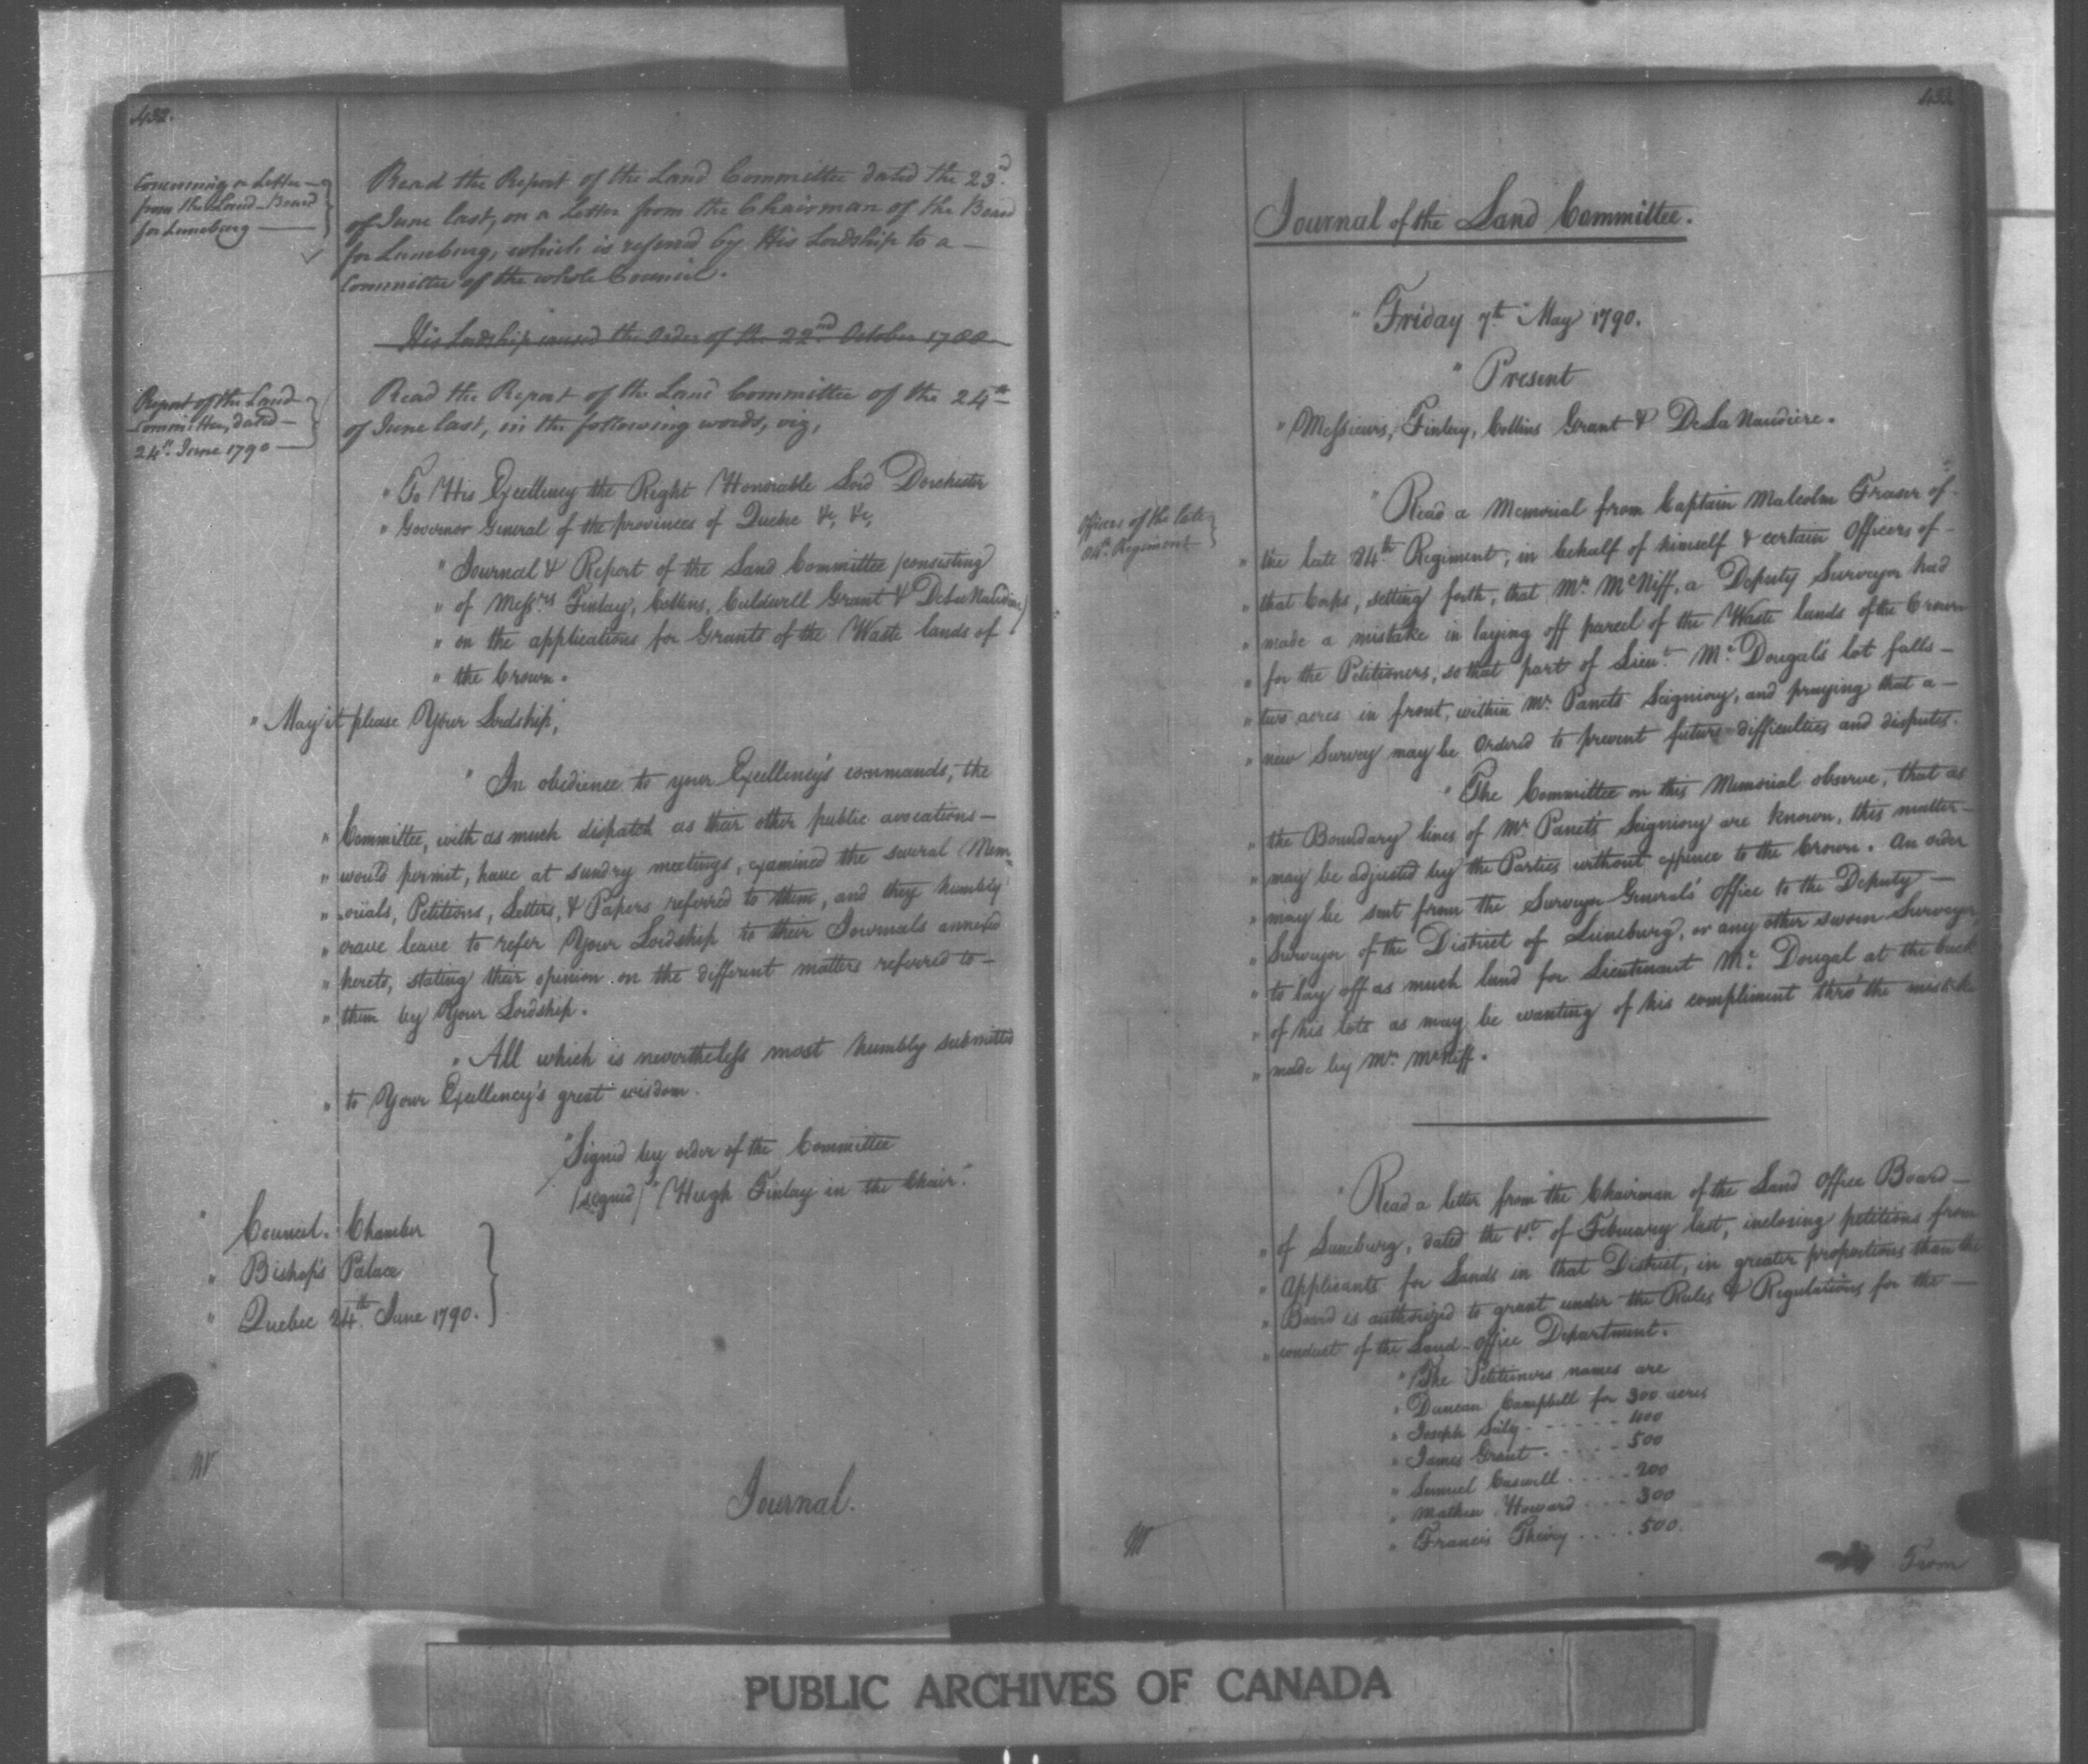 432.
Concerning a Letter
from the Land Board
for Luneburg
Read the Report of the Land Committee dated the 23d.
of June last, on a Letter from the Chairman of the Board
for Luneburg, which is referred by His Lordship to a
Committee of the whole Council.
His Lordship caused the Order of the 22nd. October 1788
Report of the Land
Committee, dated
24th. June 1790
Read the Report of the Land Committee of the 24th
of June last, in the following words, viz,
" To His Excellency the Right Honorable Lord Dorchester
" Governor General of the provinces of Quebec &c, &c,
" Journal & Report of the Land Committee (consisting
" of Messrs Finlay, Collins, Caldwell Grant & DeLaNaudiere)
" on the applications for Grants of the Waste lands of
" the Crown.
" May it please Your Lordship,
" In obedience to your Excellency's commands, the
" Committee, with as much dispatch as their other public avocations
" would permit, have at sundry meetings, examined the several Mem
" orials, Petitions, Letters, & Papers referred to them, and they humbly
" crave leave to refer Your Lordship to their Journals annexed
" hereto, stating their opinion on the different matters referred to
" them by Your Lordship.
" All which is nevertheless most humbly submitted
" to Your Excellency's great wisdom.
"Signed by order of the Committee
(signed) "Hugh Finlay in the Chair."
" Council Chamber
" Bishop's Palace
" Quebec 24th June 1790.
Journal.
433
Journal of the Land Committee.
" Friday 7th May 1790.
" Present
" Messieurs, Finlay, Collins Grant & DeLaNaudiere.
Officers of the late
84th. Regiment
" Read a Memorial from Captain Malcolm Fraser of
" the late 84th Regiment, in behalf of himself & certain Officers of
" that Corps, setting forth, that Mr. McNiff, a Deputy Surveyor had
" made a mistake in laying off parcel of the Waste lands of the Crown
" for the Petitioners, so that part of Lieut. Mc. Dougal's lot falls
" two acres in front, within Mr. Panets Seigniory, and praying that a
" new Survey may be Ordered to prevent future difficulties and disputes.
" The Committee on this Memorial observe, that as
" the Boundary lines of Mr. Panet's Seigniory are known, this matter
" may be adjusted by the Parties without expence to the Crown. An order
" may be sent from the Surveyor Generals' Office to the Deputy
" Surveyor of the District of Luneburg, or any other sworn Surveyor,
" to lay off as much land for Lieutenant Mc. Dougal at the back
" of his lots as may be wanting of his compliment thro' the mistake
" made by Mr. McNiff.
" Read a letter from the Chairman of the Land Office Board
" of Luneburg, dated the 1st. of February last, inclosing petitions from
" Applicants for Lands in that District, in greater proportions than the
" Board is authorized to grant under the Rules & Regulations for the
" conduct of the Land-office Department.
" The Petitioners names are
" Duncan Campbell for 300 acres
" Joseph Sily - - - - - - 400
" James Grant - - - - - 500
" Samuel Caswell - - - - - 200
" Mathew Howard - - - - 300
" Francis - - - - 500.
From
PUBLIC ARCHIVES OF CANADA